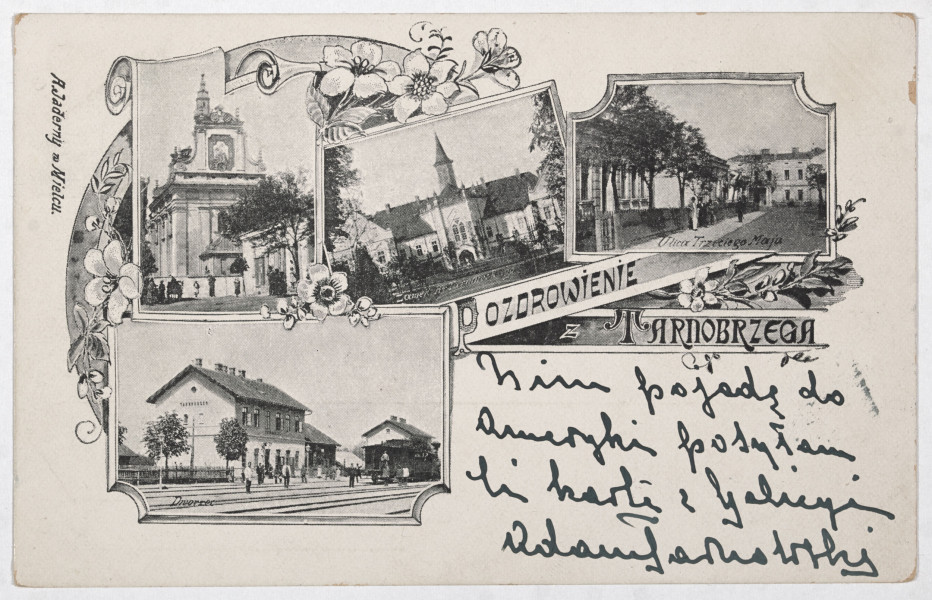 A. Jaderny w Mielcu.
Ulica Trzeciego Maja
POZDROWIENIE
z TARNOBRZEGA
TARNOBRZEG
Dworzec
Nim pojadę do
Ameryki posyłam
Ci kartę z Galicyi
Adam Tarnowski